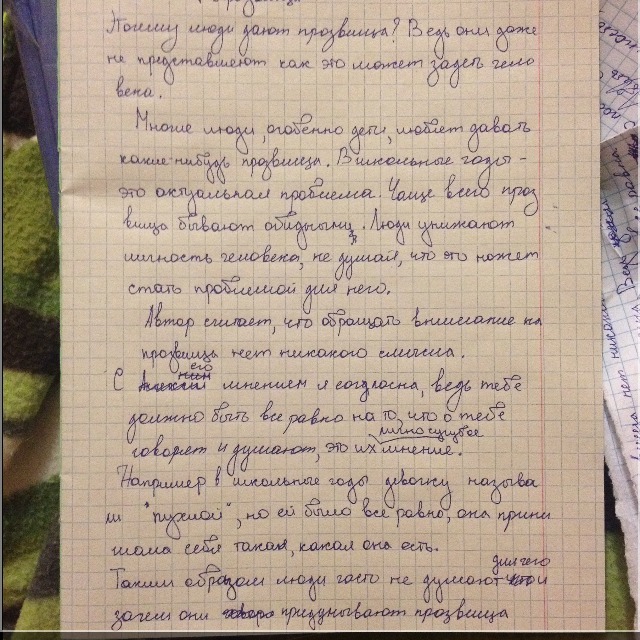 Почему люди дают прозвища? Ведь они даже
не представляют как это может задеть чело
века.
Многие люди, особенно дети, любят давать
какие-нибудь прозвища. В школьные годы -
это актуальная проблема. Чаще всего проз
вища бывают обидными. Люди унижают
личность человека, не думая, что это может
стать проблемой для него.
Автор считает, что обращать внимание на
прозвища нет никакого смысла.
С его мнением я согласна, ведь тебе
должно быть все равно на то, что о тебе
говорят и думают, это их личносугубое мнение.
Например в школьные годы девочку называ
ли "пухлой", но ей было все равно, она прини
мала себя такая, какая она есть.
Таким образом люди часто не думают для чего и
зачем они придумывают прозвища